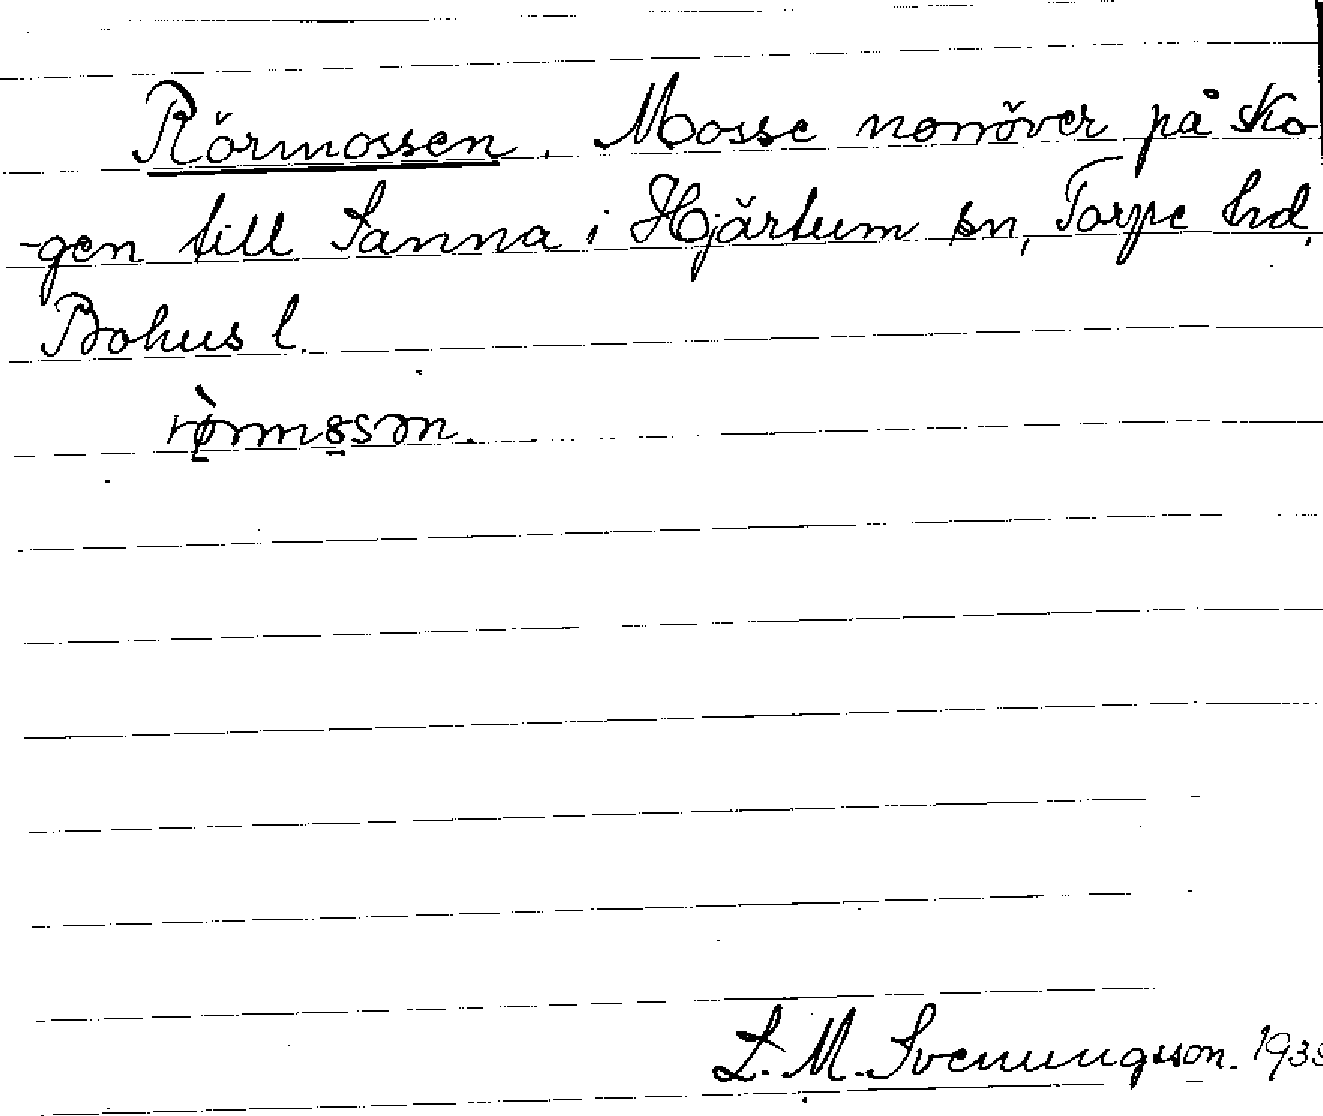 Rörmossen. Mosse norröver på sko
-gen till Sanna i Hjärtum sn, Torpe hd,
Bohus l.
L. M. Svenungsson. 193